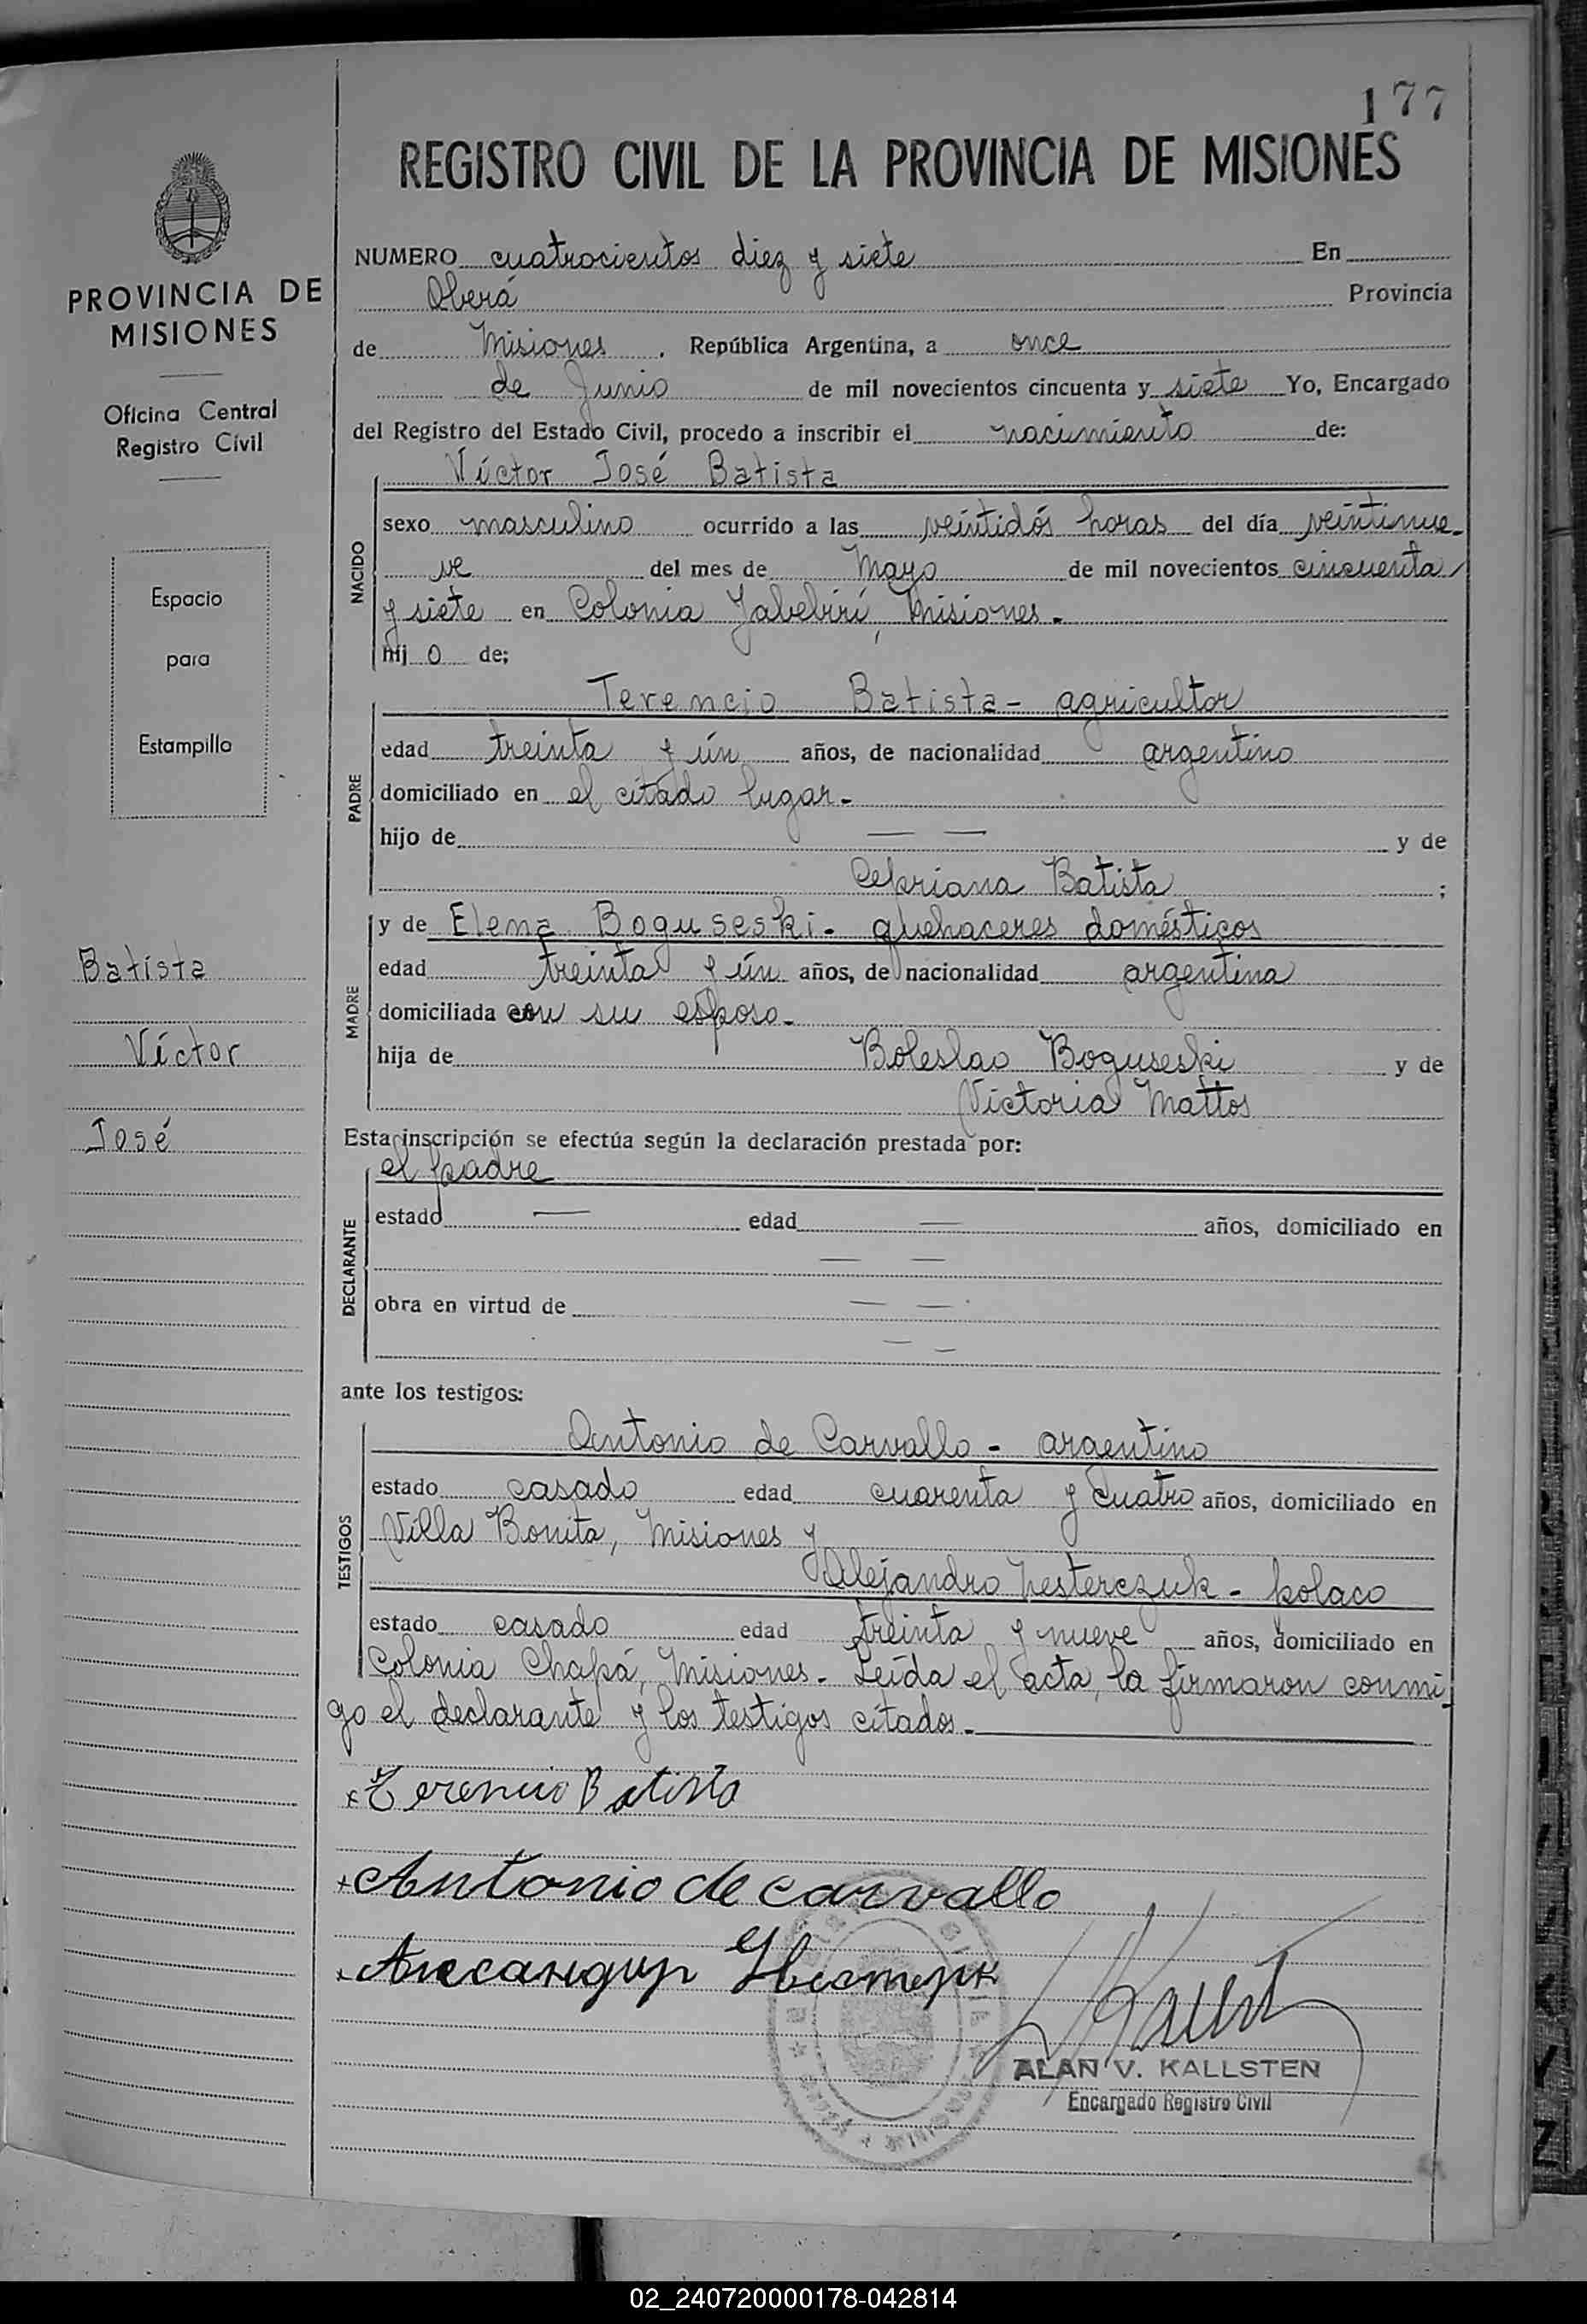 177
REGISTRO CIVIL DE LA PROVINCIA DE MISIONES
PROVINCIA DE
MISIONES
Oficina Central
Registro Civil
Espacio
para
Estampilla
Batista
Víctor
José
NUMERO cuatrocientos diez y siete En
Oberá Provincia
de Misiones . República Argentina, a once
de Junio de mil novecientos cincuenta y siete Yo, Encargado
del Registro del Estado Civil, procedo a inscribir el nacimiento de:
NACIDO
Víctor José Batista
sexo masculino ocurrido a las veintidós horas del día veintinue-
ve del mes de Mayo de mil novecientos cincuenta
y siete en Colonia Yabebirí, Misiones.-
hij o de;
PADRE
Terencio Batista - agricultor
edad treinta y ún años, de nacionalidad argentino
domiciliado en el citado lugar.-
hijo de — — y de
Cepriana Batista ;
MADRE
y de Elena Boguseski - quehaceres domésticos
edad treinta y ún años, de nacionalidad argentina
domiciliada con su esposo.-
hija de Boleslao Boguseski y de
Victoria Mattos
Esta inscripción se efectúa según la declaración prestada por:
DECLARANTE
el padre
estado — edad — años, domiciliado en
— —
obra en virtud de — —
— —
ante los testigos:
TESTIGOS
Antonio de Carvallo - argentino
estado casado edad cuarenta y cuatro años, domiciliado en
Villa Bonita, Misiones y
Alejandro Nesterczuk - polaco
estado casado edad treinta y nueve años, domiciliado en
Colonia Chapá, Misiones.- Leída el acta, la firmaron conmi-
go el declarante y los testigos citados.-
Terencio Batista
Antonio de carvallo
ALAN V. KALLSTEN
Encargado Registro Civil
02_240720000178-042814